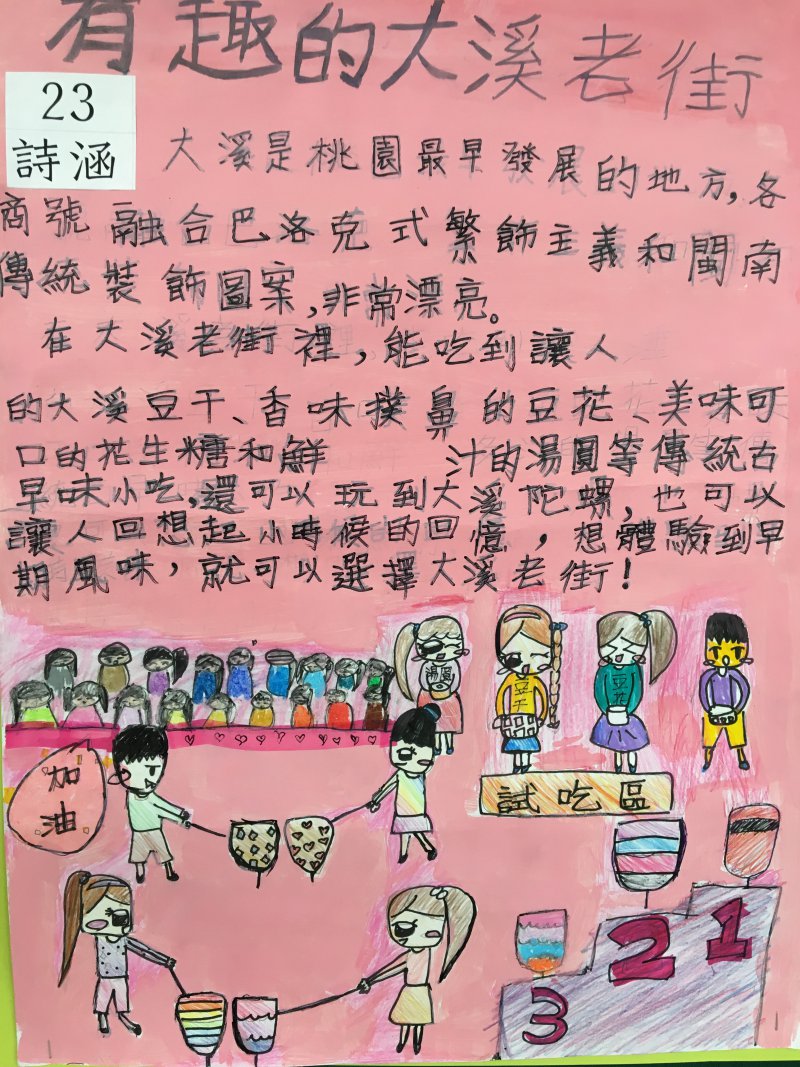 有趣的大溪老街
23
詩涵
大溪是桃園最早發展的地方,各
商號融合巴洛克式繁飾主義和閩南
傳統裝飾圖案,非常漂亮。
在大溪老街裡,能吃到讓人
的大溪豆干、香味撲鼻的豆花、美味可
口的花生糖和鮮 汁的湯圓等傳統古
早味小吃,還可以玩到大溪陀螺,也可以
讓人回想起小時候的回憶,想體驗到早
期風味,就可以選擇大溪老街!
湯圓
豆干
豆花
加油
試吃區
1
2
3